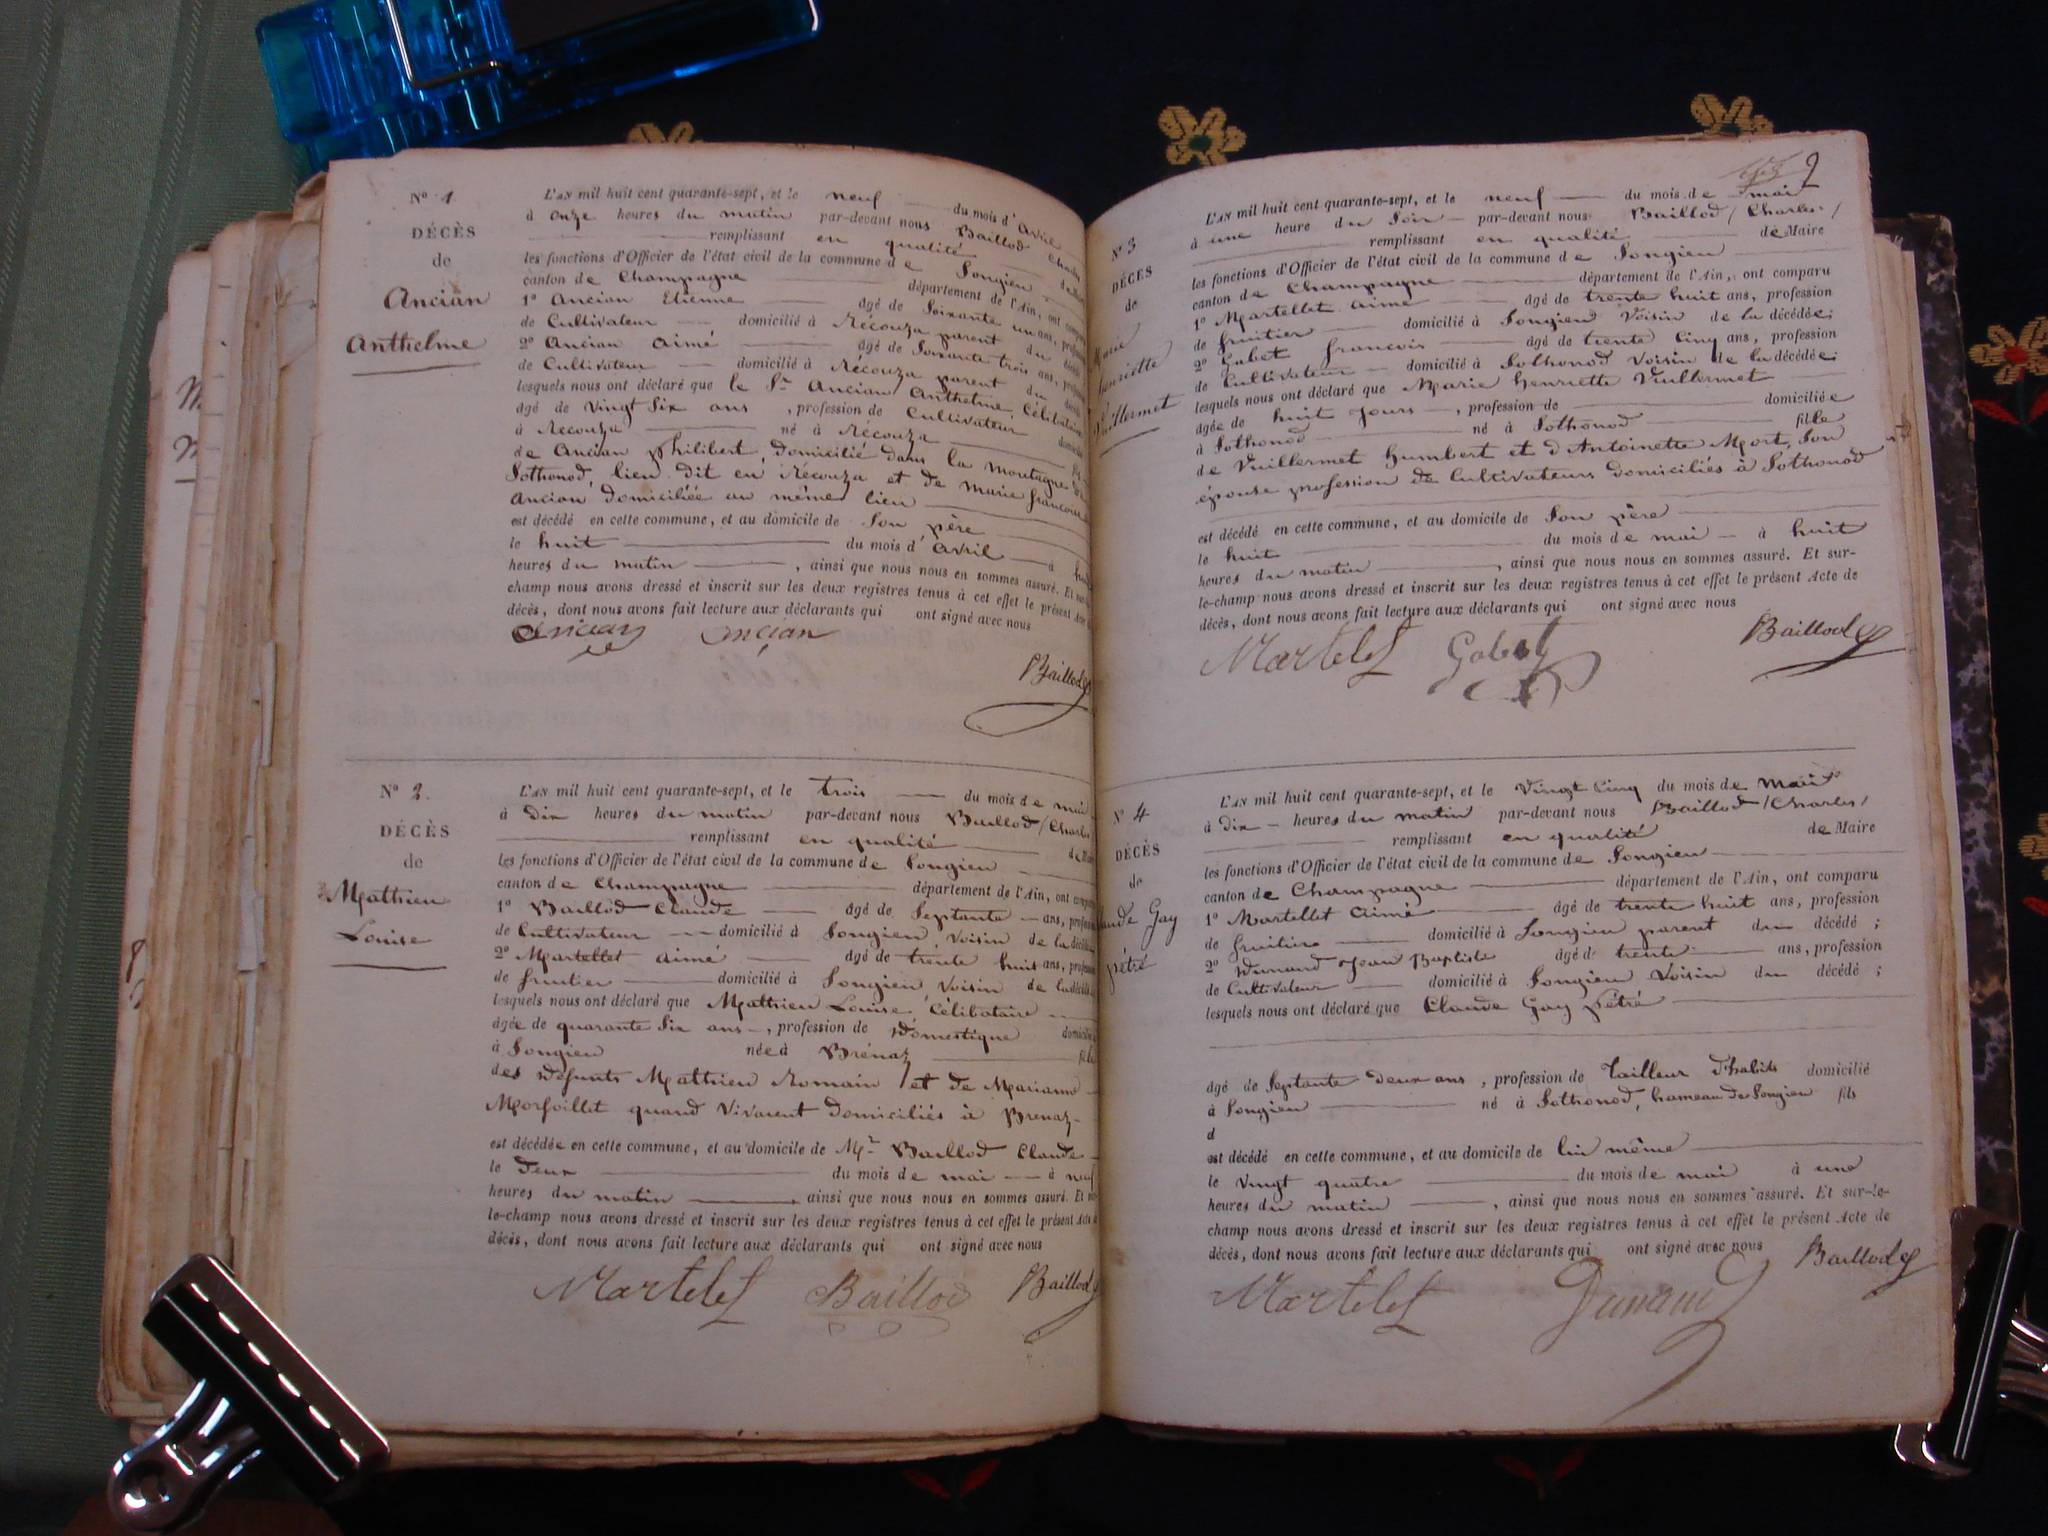 Nº 1
DÉCÈS
de
Ancian
Anthelme
L'AN mil huit cent quarante-sept, et le neuf du mois d'avril
à onze heures du matin par-devant nous Baillod
remplissant en qualité
les fonctions d'Officier de l'état civil de la commune de Songieu
canton de Champagne département de l'Ain, ont
1º Ancian Etienne agé de Soixante un ans,
de Cultivateur domicilié à Récouza parent du
2º Ancian Aimé agé de Soixante trois ans,
de Cultivateur domicilié à Récouza parent du
lesquels nous ont déclaré que le Sr Ancian Anthelme, Célibataire
agé de Vingt Six ans, profession de Cultivateur
à Récouza né à Récouza
de Ancian Philibert, domicilié dans la montagne
Sothonod, lieu dit en Récouza et de Marie
Ancian domiciliée au même lieu
est décédé en cette commune, et au domicile de Son père
le huit du mois d'avril à
heures du matin, ainsi que nous nous en sommes assuré. Et
champ nous avons dressé et inscrit sur les deux registres tenus à cet effet le présent Acte
décès, dont nous avons fait lecture aux déclarants qui ont signé avec nous
ancian
Baillod
Nº 2.
DÉCÈS
de
Mathieu
Louise
L'AN mil huit cent quarante-sept, et le trois du mois de mai
à dix heures du matin par-devant nous Baillod /Charles
remplissant en qualité de
les fonctions d'Officier de l'état civil de la commune de Songieu
canton de Champagne département de l'Ain, ont
1º Baillod Claude agé de Septante ans,
de Cultivateur domicilié à Songieu, Voisin de la
2º Martellet Aimé agé de trente huit ans,
de fruitier domicilié à Songieu, Voisin de la
lesquels nous ont déclaré que Mathieu Louise, Célibataire
agée de quarante Six ans, profession de Domestique
à Songieu née à Brénaz
des défunts Mathieu Romain et de Marianne
Morfoillet quand Vivaient domiciliés à Brenaz
est décédée en cette commune, et au domicile de Mr Baillod Claude
le deux du mois de mai à neuf
heures du matin, ainsi que nous nous en sommes assuré. Et
le-champ nous avons dressé et inscrit sur les deux registres tenus à cet effet le présent Acte
décès, dont nous avons fait lecture aux déclarants qui ont signé avec nous
Martelet Baillod Baillod
2
Nº 3
DÉCÈS
de
Marie
henriette
Vuillermet
L'AN mil huit cent quarante-sept, et le neuf du mois de mai
à une heure du Soir par-devant nous Baillod /Charles/
remplissant en qualité de Maire
les fonctions d'Officier de l'état civil de la commune de Songieu
canton de Champagne département de l'Ain, ont comparu
1º Martellet Aimé agé de trente huit ans, profession
de fruitier domicilié à Songieu Voisin de la décédée;
2º Gabet françois agé de trente Cinq ans, profession
de Cultivateur domicilié à Sothonod Voisin de la décédée;
lesquels nous ont déclaré que Marie henriette Vuillermet
agée de huit jours, profession de domiciliée
à Sothonod né à Sothonod fille
de Vuillermet humbert et d'Antoinette Mort, Son
épouse profession de Cultivateurs domiciliés à Sothonod
est décédé en cette commune, et au domicile de Son père
le huit du mois de mai à huit
heures du matin, ainsi que nous nous en sommes assuré. Et sur-
le-champ nous avons dressé et inscrit sur les deux registres tenus à cet effet le présent Acte de
décès, dont nous avons fait lecture aux déclarants qui ont signé avec nous
Martelet Gabet Baillod
Nº 4
DÉCÈS
de
Claude Gay
pétré
L'AN mil huit cent quarante-sept, et le Vingt Cinq du mois de mai
à dix heures du matin par-devant nous Baillod /Charles/
remplissant en qualité de Maire
les fonctions d'Officier de l'état civil de la commune de Songieu
canton de Champagne département de l'Ain, ont comparu
1º Martellet Aimé agé de trente huit ans, profession
de fruitier domicilié à Songieu parent du décédé;
2º Dunand Jean Baptiste agé de trente ans, profession
de Cultivateur domicilié à Songieu Voisin du décédé;
lesquels nous ont déclaré que Claude Gay pétré
agé de Septante deux ans, profession de Tailleur d'habits domicilié
à Songieu né à Sothonod, hameau de Songieu fils
d
est décédé en cette commune, et au domicile de lui même
le Vingt quatre du mois de mai à une
heures du matin, ainsi que nous nous en sommes assuré. Et sur-le-
champ nous avons dressé et inscrit sur les deux registres tenus à cet effet le présent Acte de
décès, dont nous avons fait lecture aux déclarants qui ont signé avec nous
Martelet Dunand Baillod